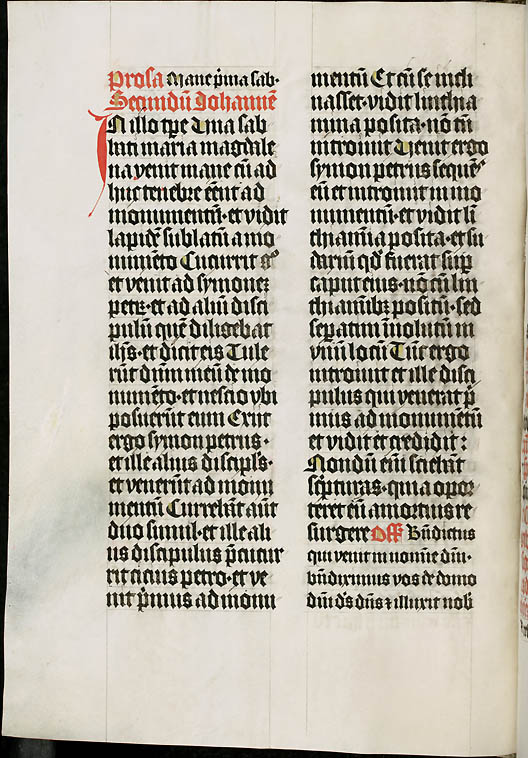 Prosa Mane p̄ma sab·
Secundū Iohannē
In illo tp̄e Una sab
bati maria magdale
na venit mane cū ad
huc tenebre eēnt ad
monumentū· et vidit
lapidē sublatū a mo
numēto Cucurrit gͦ
et venit ad symonez
petrꝝ· et ad aliū disci
pulū quē diligebat
ih̄s· et dicit eis Tule
rūt dūm meū de mo
numēto· et nescio vbi
posuerūt eum Exiit
ergo symon petrus·
et ille alius discipl̄s·
et venerūt ad monu
mentū Currebāt aūt
duo simul· et ille ali
us discipulus p̄cucur
rit cicius petro· et ve
nit p̄mius ad monu
mentū Et cū se incli
nasset· vidit linthia
mina posita· nō tn̄
introiuit Uenit ergo
symon petrus sequēs
eū et introiuit in mo
numentū· et vidit lī
thiamīa posita· et su
dariū qd̄ fuerat sup̄
caput eius· nō cū lin
thiamībꝫ positū· sed
sep̄atim īuolutū in
vnū locū Tūc ergo
introiuit et ille disci
pulus qui venerat p̄
mius ad monumētū
et vidit et credidit :
Nondū em̄ sciebāt
sc̄pturas· quia opor
teret eū a mortuis re
surgere Off Bn̄dictus
qui venit in nomīe dn̄i·
bn̄diximus vos de domo
dn̄i d̄s dn̄s ⁊ illuxit nob̄